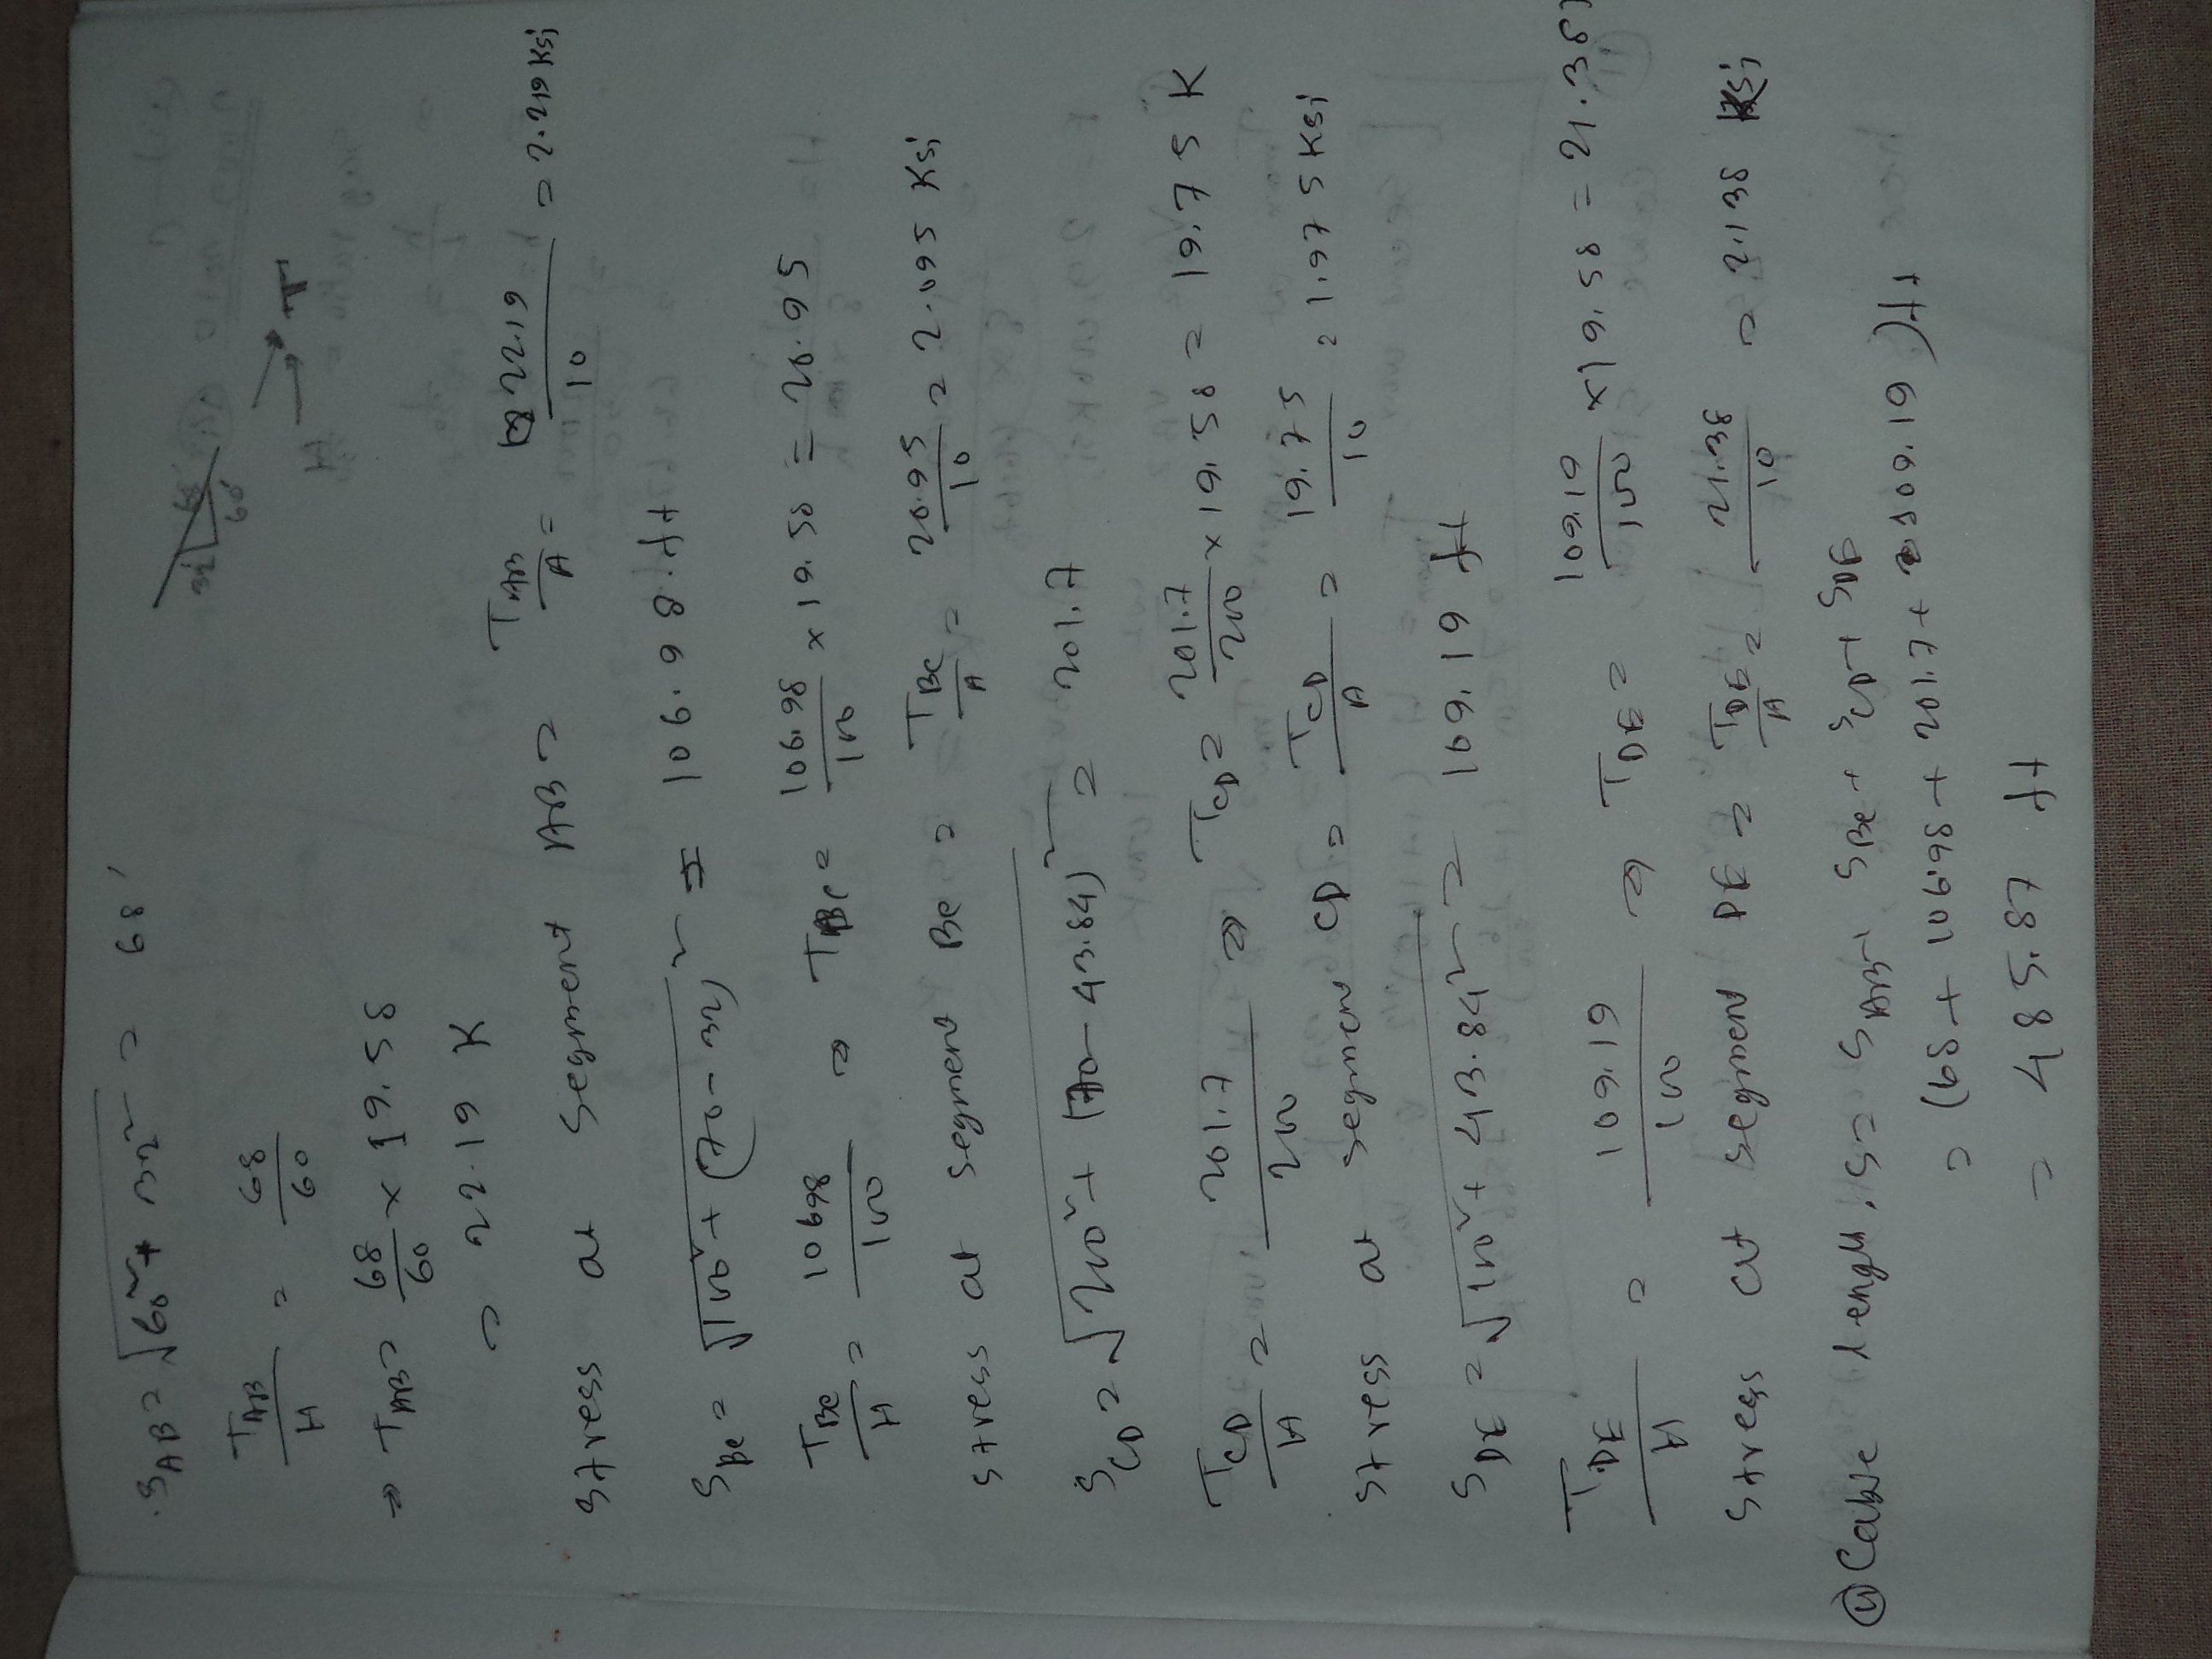 S_AB = √60² + 32² = 68'
T_AB/H = 68/60
32
60
H
T
⇒ T_AB = 68/60 × 19.58
= 22.19 K
Stress at segment AB = T_AB/A = 22.19/10 = 2.219 Ksi
S_BC = √100² + (70-32)² = 106.98 ft
T_BC/H = 106.98/100 ⇒ T_BC = 106.98/100 × 19.58 = 20.95
Stress at segment BC = T_BC/A = 20.95/10 = 2.095 Ksi
S_CD = √200² + (70-43.84)² = 201.7
T_CD/H = 201.7/200 ⇒ T_CD = 201.7/200 × 19.58 = 19.75 K
Stress at segment CD = T_CD/A = 19.75/10 = 1.975 Ksi
S_DE = √100² + 43.84² = 109.19 ft
T_DE/H = 109.19/100 ⇒ T_DE = 109.19/100 × 19.58 = 21.38
Stress at segment DE = T_DE/A = 21.38/10 = 2.138 Ksi
Cable length, S = S_AB + S_BC + S_CD + S_DE
= (68 + 106.98 + 201.7 + 109.19) ft
= 485.87 ft